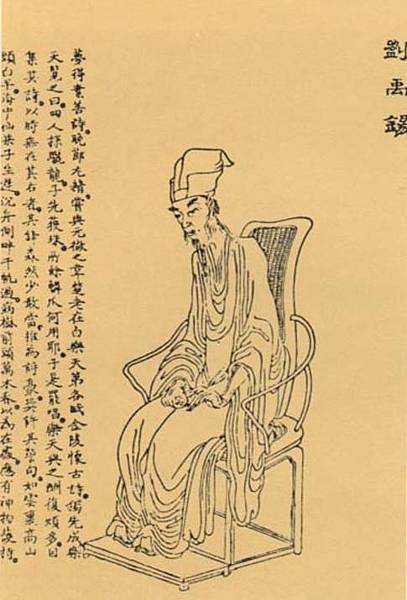 劉禹錫
夢得素善詩晚節尤精嘗與元微之韋楚老在白樂天第各賦金陵懷古詩獨先成樂
天覽之曰四人探驪龍子先獲珠所餘鱗爪何用耶于是罷唱樂天與之酬復頗多因
集其詩以時無在其右者其鋒森然少敢當推為詩豪其句如雪裏高山
頭白早海中仙果子生遲沉舟側畔千帆過病樹前頭萬木春以為在處應有神物護持